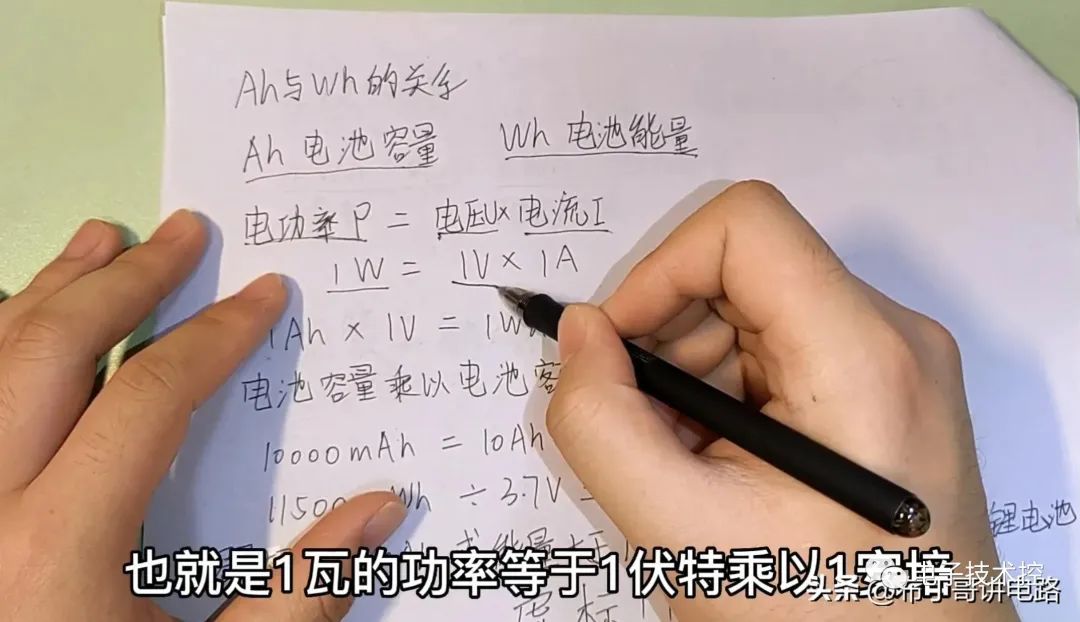 Ah与Wh的关系
Ah 电池容量 Wh 电池能量
电功率P = 电压U× 电流I
1W = 1V × 1A
1Ah × 1V = 1W
电池容量乘以电池容
10000mAh = 10Ah
11500 Wh ÷ 3.7V =
锂电池
也就是1瓦的功率等于1伏特乘以1安培
虚标
电子技术控
头条 @布丁哥讲电路